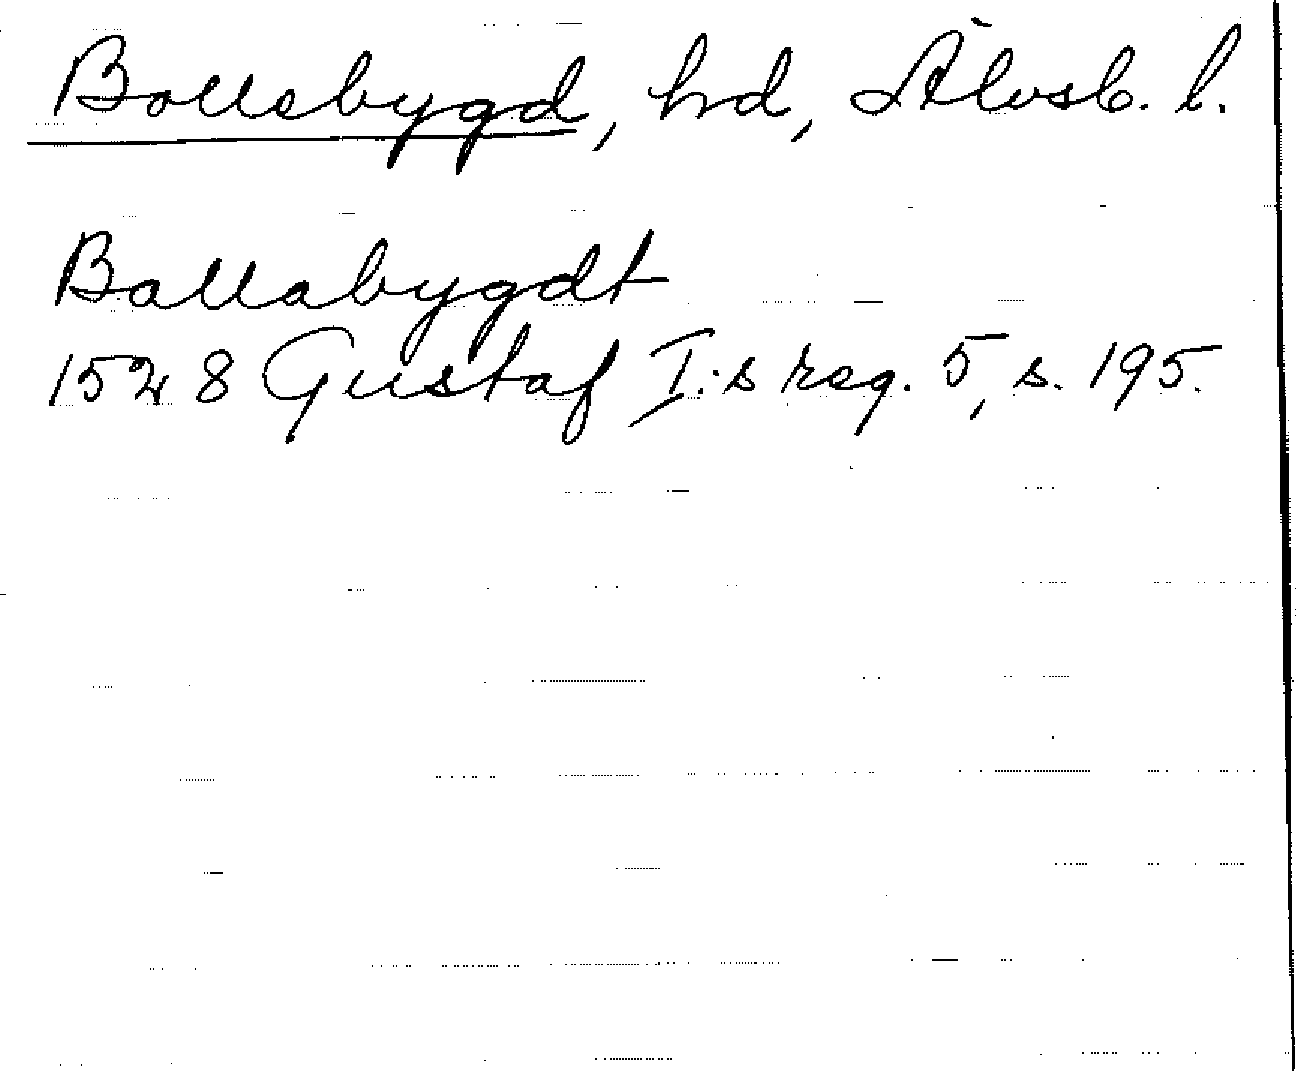 Bollebygd, hd, Älvsb. l.
Ballabygdt
1528 Gustaf I:s reg. 5, s. 195.